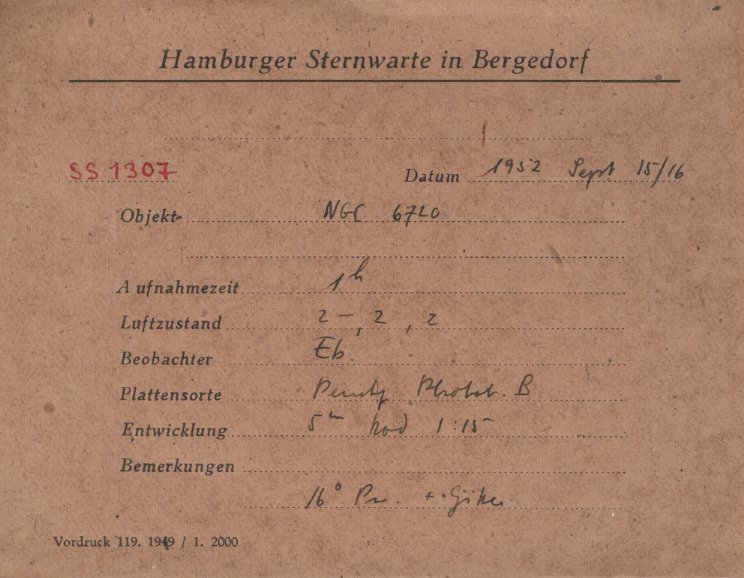 Hamburger Sternwarte in Bergedorf
SS 1307
Datum 1952 Sept 15/16
Objekt NGC 6720
Aufnahmezeit 1h
Luftzustand 2-, 2, 2
Beobachter Eb.
Plattensorte B
Entwicklung 5m Rod 1:15
Bemerkungen
16° Pr. +
Vordruck 119. 1949 / 1. 2000